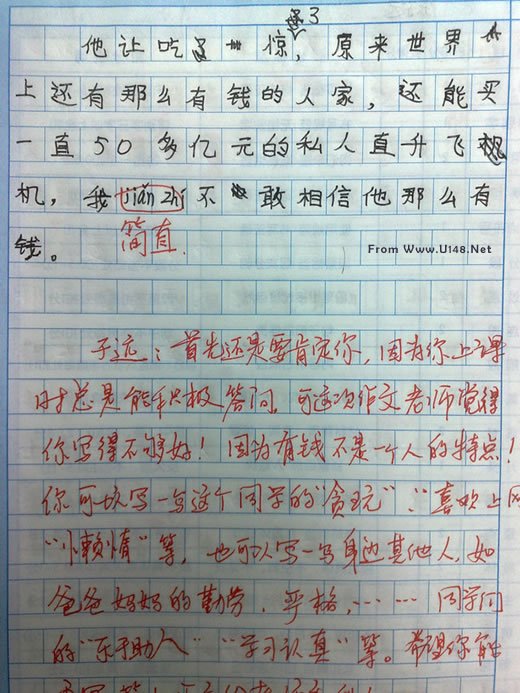 3
他让吃了一惊，原来世界
上还有那么有钱的人家，还能买
一直50多亿元的私人直升飞
机，我jiǎn zhí不敢相信他那么有
简直
钱。
From Www.U148.Net
子远：首先还是要肯定你，因为你上课
时总是能积极答问，可这次作文老师觉得
你写得不够好！因为有钱不是一个人的特点！
你可以写一写这个同学的“贪玩”、“喜欢上网
“小赖情”等，也可以写一写身边其他人，如
爸爸妈妈的勤劳、严格，……同学间
的“乐于助人”“学习认真”等。希望你能